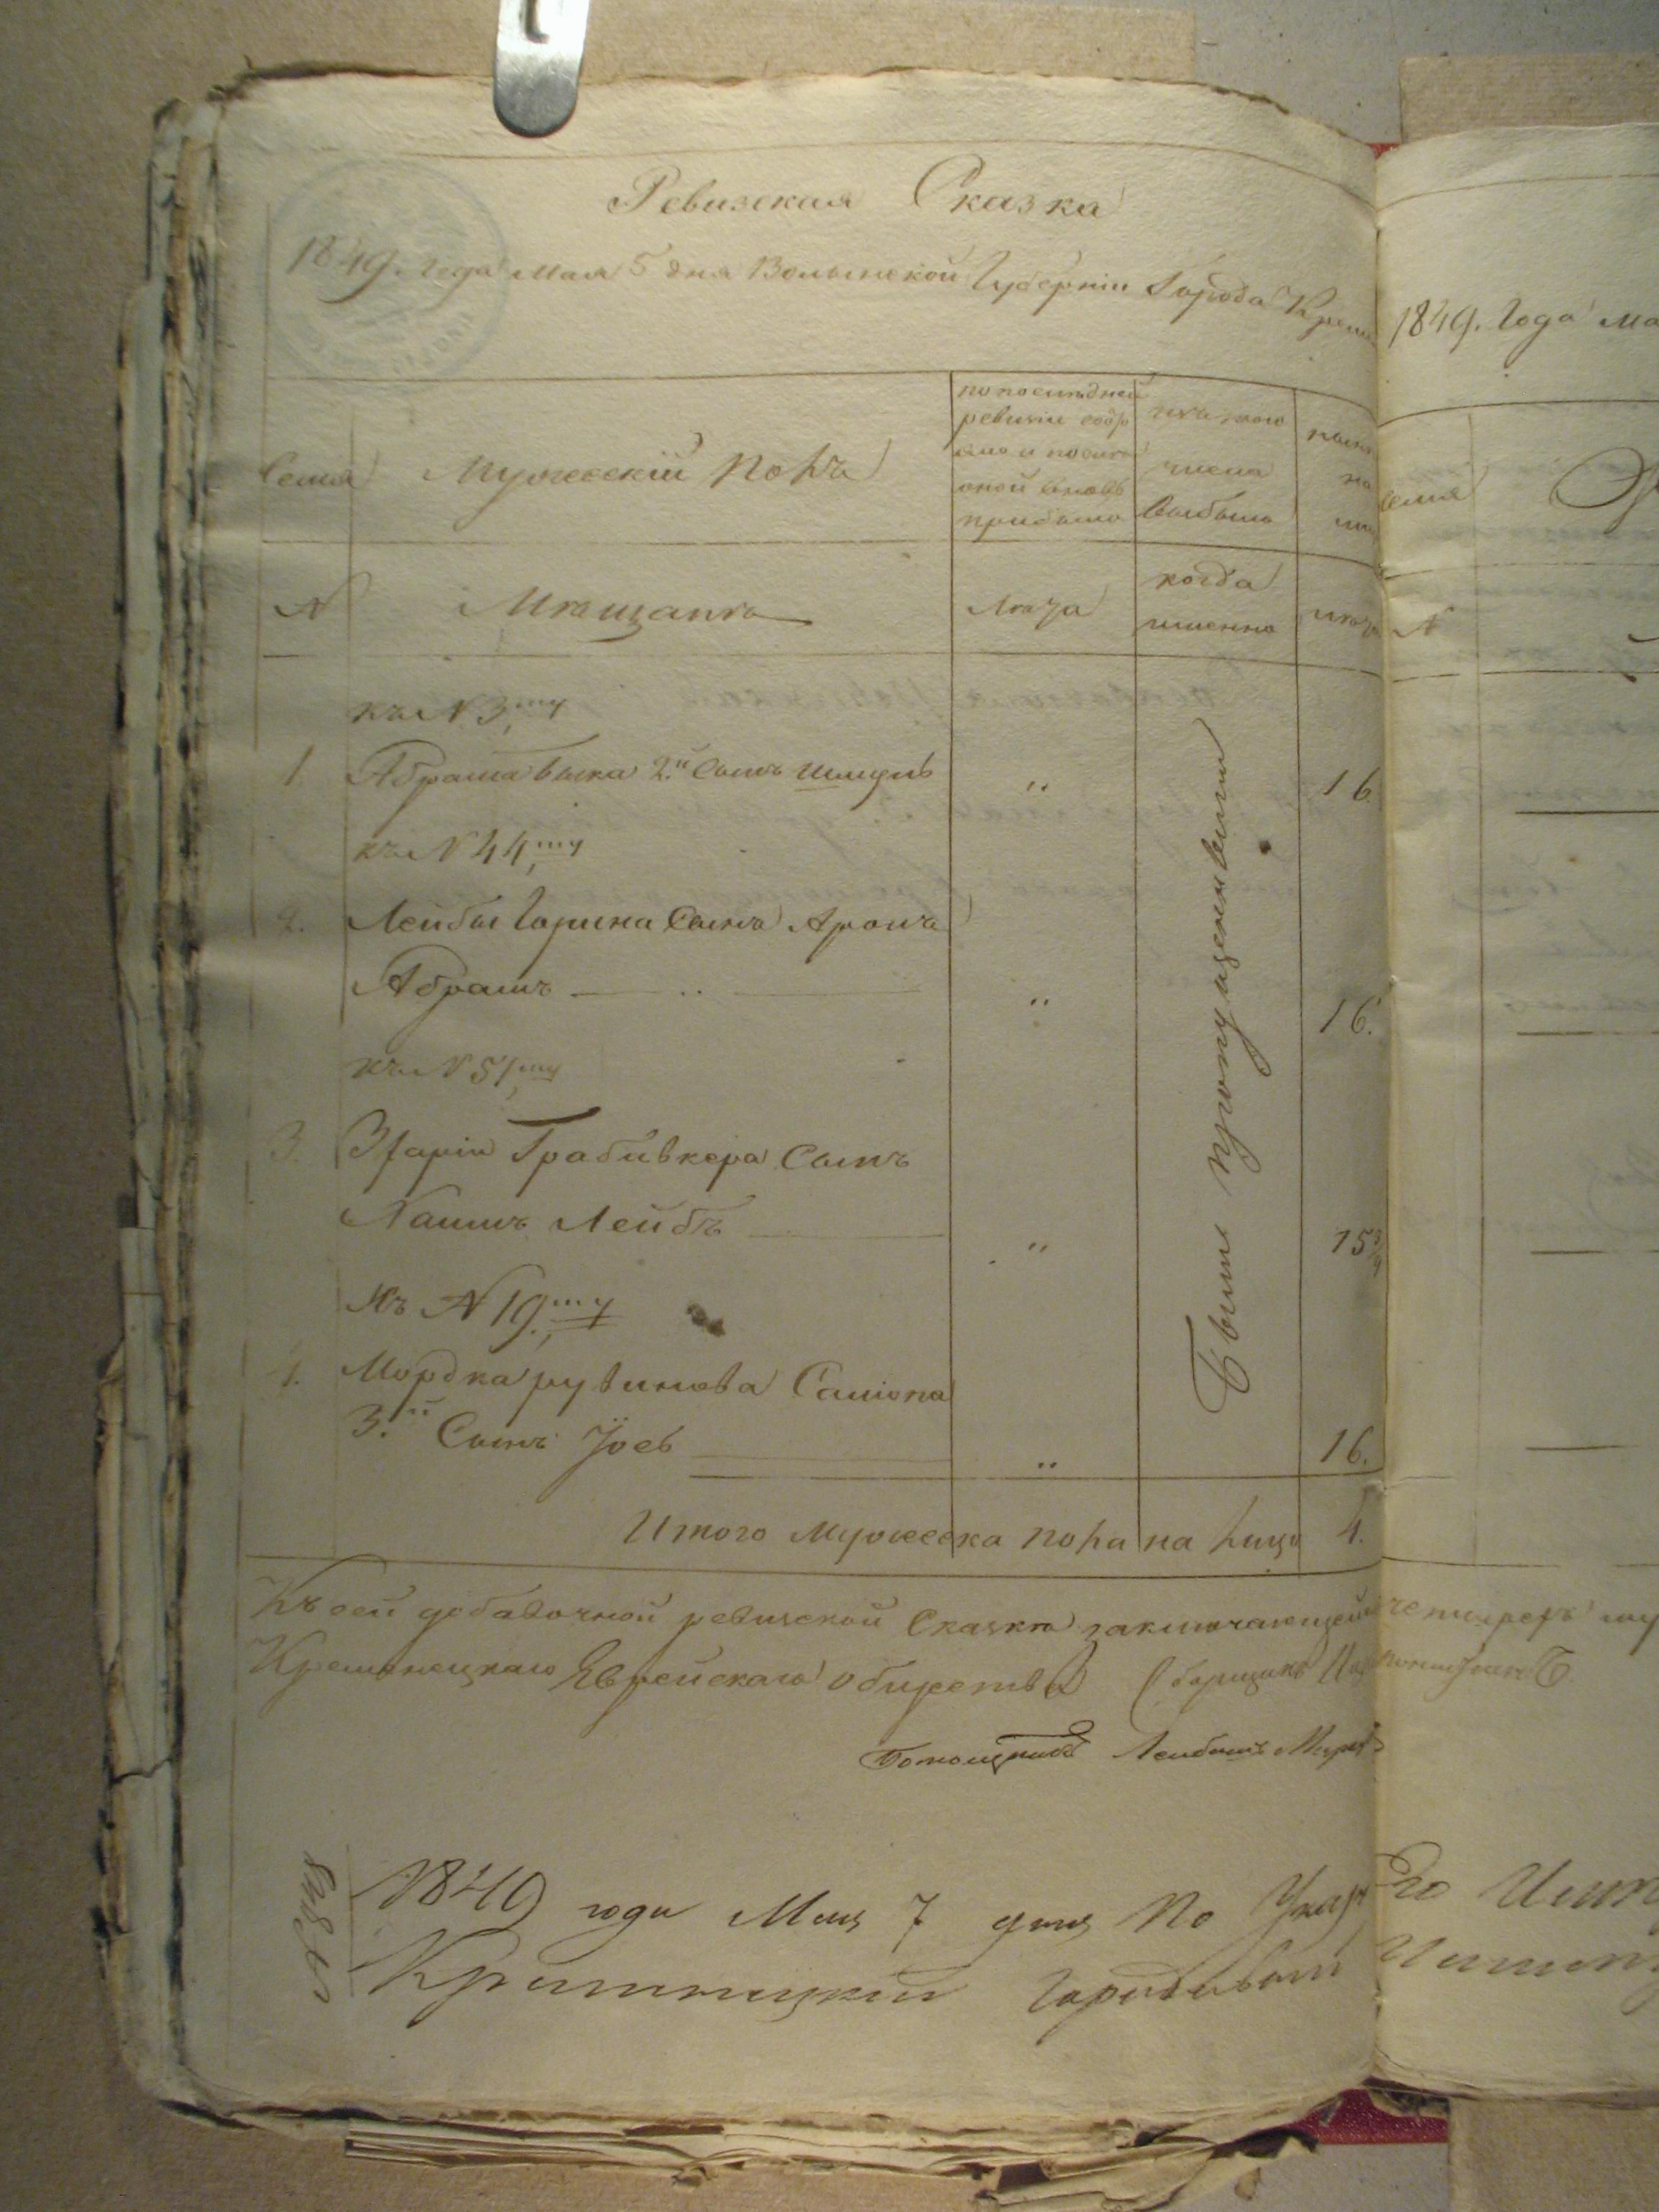 Ревизская Сказка
1849. года мая 5 дня Волынской Губерніи Города Креме
Семья
Мужескій полъ
по последней
ревизіи состо
яло и после
оной вновь
прибыло
изъ того
числа
выбыло
ныне
на
лиц
N
Мещанъ
лета
когда
именно
лета
къ N 3му
1. Абрама Быка 2й сынъ Шмуль " 16
къ N 44му
2. Лейбы Горина сынъ Аронъ
Абрамъ " 16.
къ N 51му
3. Грабивкера сынъ
Хаимъ Лейбъ " 15
Къ N 19му
4. Мордка рувинова
3й Сынъ Іось " 16.
Были пропущенными
Итого мужеска пола на лицо 4.
Къ сей добавочной ревизской Сказке заключающейся четырехъ му
Кременецкаго Еврейскаго общества Сборщикъ
Помощникъ Лейбишъ
1849 года Мая 7 дня По Указу Его Импе
Кременецкій Городовой
1849. Года ма
Семья
N